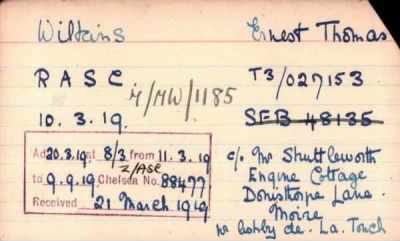 Wilkins Ernest Thomas
R A S C. T3/027153
7/MW/1185
10. 3. 19. SFB 48135
Ad 20.3.19 at 8/3 from 11.3.19
Z/ASC
to 9.9.19 Chelsea No. 88477
Received 21 March 1919
c/o Mr Shuttleworth
Engine Cottage
Donisthorpe Lane.
Moire
nr Ashby de. La. Touch